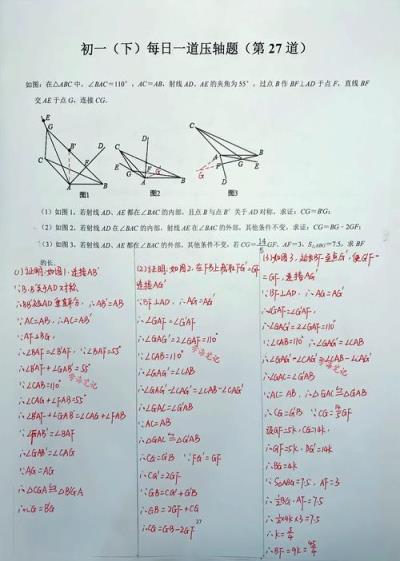 初一（下）每日一道压轴题（第 27 道）
如图：在△ABC 中，∠BAC=110°，AC=AB，射线 AD、AE 的夹角为 55°，过点 B 作 BF⊥AD 于点 F，直线 BF
交 AE 于点 G，连接 CG.
图1
图2
图3
（1）如图 1，若射线 AD、AE 都在∠BAC 的内部，且点 B 与点 B′ 关于 AD 对称，求证：CG=B′G；
（2）如图 2，若射线 AD 在∠BAC 的内部，射线 AE 在∠BAC 的外部，其他条件不变，求证：CG=BG - 2GF；
（3）如图 3，若射线 AD、AE 都在∠BAC 的外部，其他条件不变，若 CG=14/5 GF，AF=3，S△ABG=7.5，求 BF
的长.
(1)证明:如图1,连接AB'
∵B、B'关于AD对称
∴BB'被AD垂直平分 ∴AB'=AB
∵AC=AB, ∴AC=AB'
∵AF⊥BG,
∴∠BAF=∠B'AF, ∵∠BAF=55°
∵∠CAB=110°
∴∠CAG+∠FAB=55°
∴∠GAB'=∠CAG
∵AG=AG
∴△CGA≌△B'GA
∴CG=B'G
(2)证明:如图2,在FB上截取FG'=GF
连接AG'
∵BF⊥AD, ∴AG=AG'
∴∠GAF=∠G'AF
∴∠GAG'=2∠GAF=110°
∵∠CAB=110°
∴∠GAG'=∠CAB
∴∠GAG'-∠CAG'=∠CAB-∠CAG'
∴∠GAC=∠G'AB
∵AC=AB
∴△GAC≌△G'AB
∴CG=G'B ∵FG'=GF
∴GG'=2GF
∵GB=GG'+G'B
∴GB=2GF+CG
∴CG=GB-2GF
(3)如图3,延长BF至点G',使G'F=
GF,连接AG'
∵BF⊥AD, ∴AG=AG'
∴∠GAF=∠G'AF
∴∠GAG'=2∠GAF=110°
∵∠CAB=110° ∴∠GAG'=∠CAB
∴∠GAC=∠G'AB
∵AC=AB, ∴△GAC≌△G'AB
设GF=5k, CG=14k
∴GF=5k, BG'=14k
∴BG=4k
∵S△ABG=7.5, AF=3
∴1/2BG·AF=7.5
∴1/2×4k×3=7.5
∴k=5/4
∴BF=9k=45/4
27